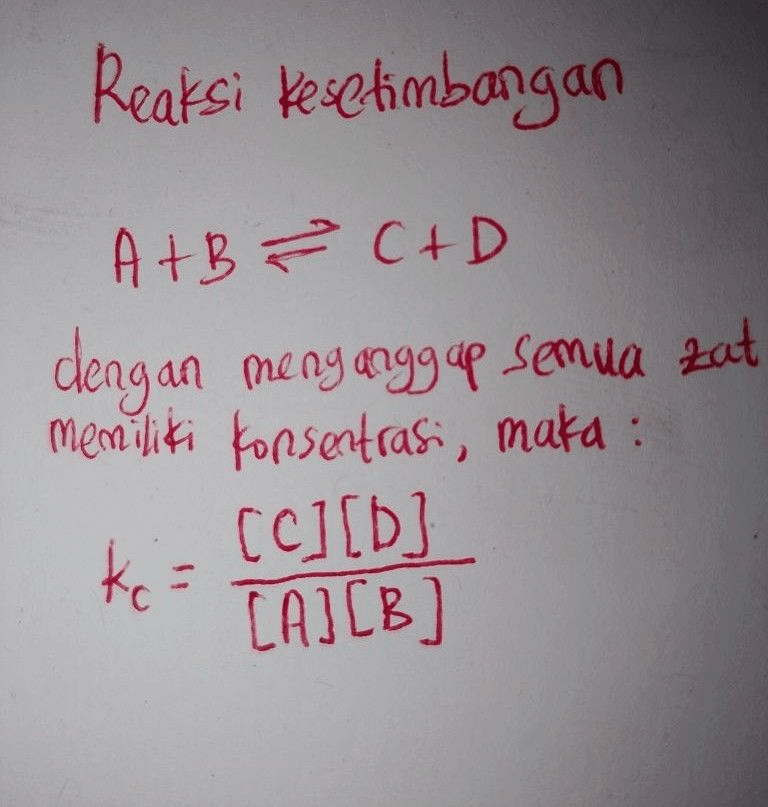 Reaksi kesetimbangan
A + B ⇌ C + D
dengan menganggap semua zat
memiliki konsentrasi, maka :
kc = [C][D] / [A][B]